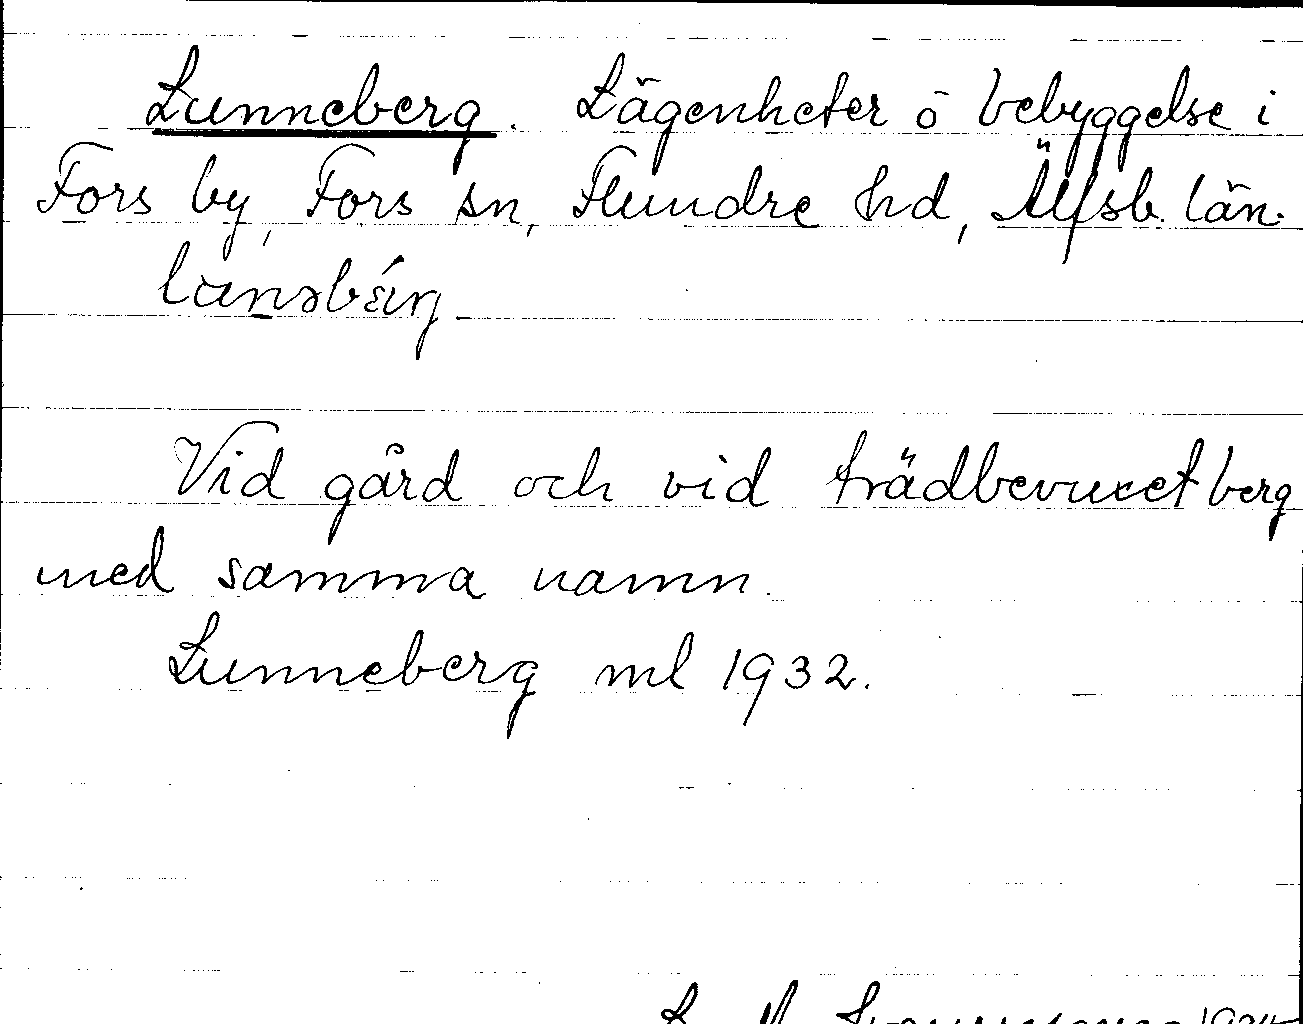 Lunneberg. Lägenheter o bebyggelse i
Fors by, Fors sn, Flundre hd, Älfsb. län.
Vid gård och vid trädbevuxet berg
med samma namn.
Lunneberg ml 1932.